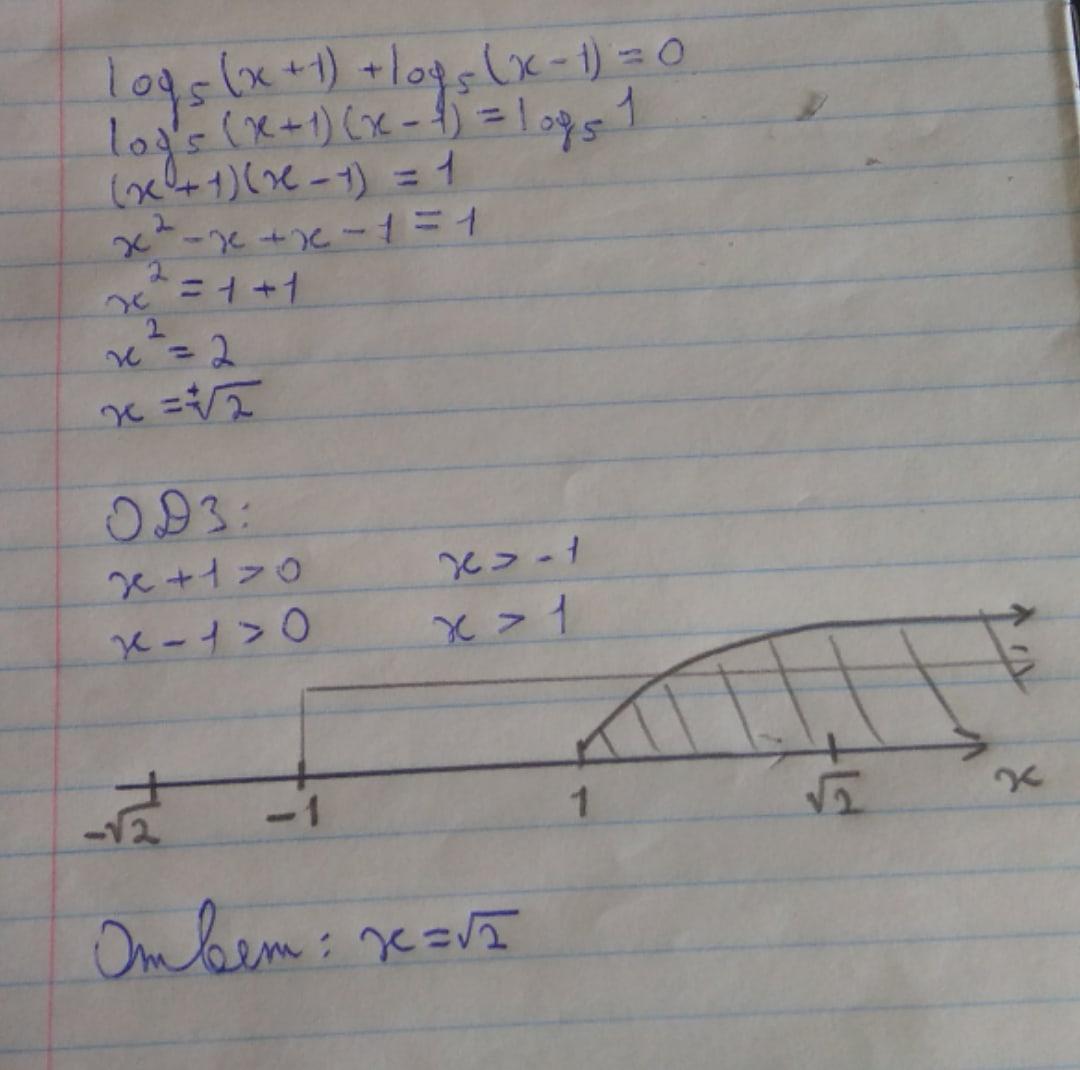 log₅(x+1)+log₅(x-1)=0
log₅(x+1)(x-1)=log₅1
(x+1)(x-1)=1
x²-x+x-1=1
x²=1+1
x²=2
x=±√2
ОДЗ:
x+1>0 x>-1
x-1>0 x>1
-√2 -1 1 √2 x
Ответ: x=√2